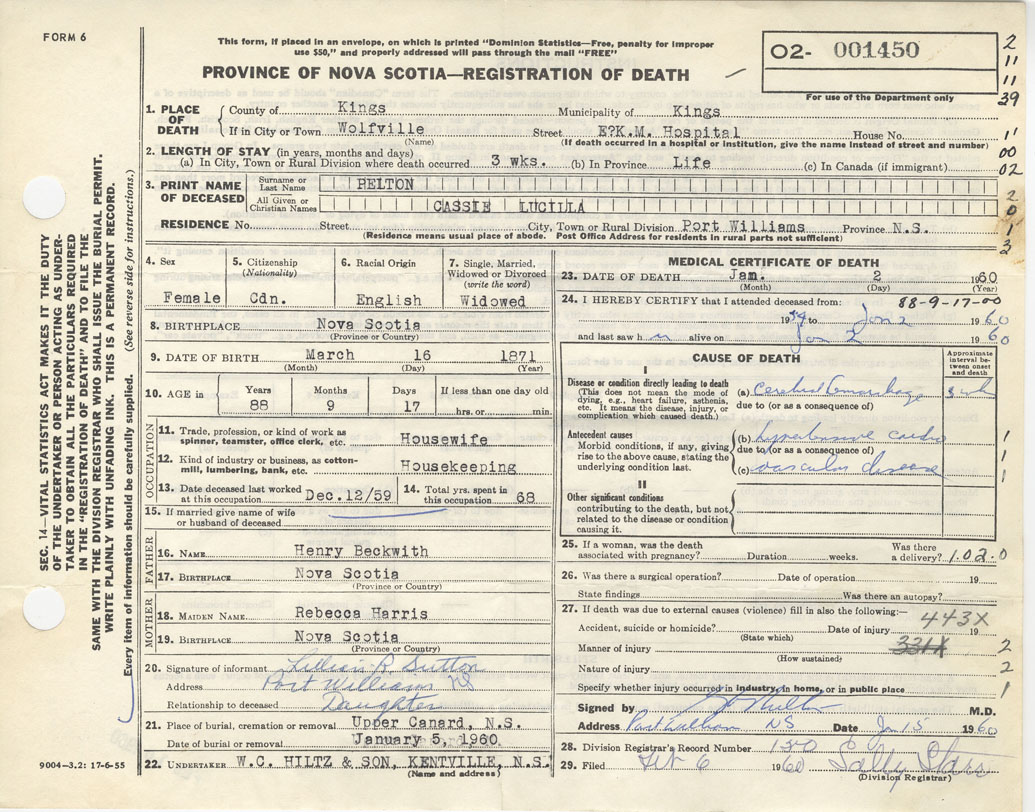 FORM 6
This form, if placed in an envelope, on which is printed "Dominion Statistics—Free, penalty for improper
use $50," and properly addressed will pass through the mail "FREE"
PROVINCE OF NOVA SCOTIA—REGISTRATION OF DEATH
O2- 001450
For use of the Department only
2
11
11
39
1. PLACE OF DEATH
County of Kings Municipality of Kings
If in City or Town Wolfville Street E?K.M. Hospital House No.
(Name) (If death occurred in a hospital or institution, give the name instead of street and number)
1'
00
02
2. LENGTH OF STAY (in years, months and days)
(a) In City, Town or Rural Division where death occurred 3 wks. (b) In Province Life (c) In Canada (if immigrant)
3. PRINT NAME OF DECEASED
Surname or Last Name PELTON
All Given or Christian Names CASSIE LUCILLA
2
0
1
3
RESIDENCE No. Street City, Town or Rural Division Port Williams Province N.S.
(Residence means usual place of abode. Post Office Address for residents in rural parts not sufficient)
4. Sex
Female
5. Citizenship
(Nationality)
Cdn.
6. Racial Origin
English
7. Single, Married,
Widowed or Divorced
(write the word)
Widowed
8. BIRTHPLACE Nova Scotia
(Province or Country)
9. DATE OF BIRTH March 16 1871
(Month) (Day) (Year)
10. AGE in
Years Months Days If less than one day old
88 9 17 hrs. or min.
OCCUPATION
11. Trade, profession, or kind of work as
spinner, teamster, office clerk, etc. Housewife
12. Kind of industry or business, as cotton-
mill, lumbering, bank, etc. Housekeeping
13. Date deceased last worked
at this occupation Dec.12/59
14. Total yrs. spent in
this occupation 68
15. If married give name of wife
or husband of deceased
FATHER
16. NAME Henry Beckwith
17. BIRTHPLACE Nova Scotia
(Province or Country)
MOTHER
18. MAIDEN NAME Rebecca Harris
19. BIRTHPLACE Nova Scotia
(Province or Country)
20. Signature of informant Lillian R Sutton
Address Port Williams NS
Relationship to deceased Daughter
21. Place of burial, cremation or removal Upper Canard, N.S.
Date of burial or removal January 5, 1960.
22. UNDERTAKER W.C. HILTZ & SON, KENTVILLE, N.S.
(Name and address)
MEDICAL CERTIFICATE OF DEATH
23. DATE OF DEATH Jan. 2 1960
(Month) (Day) (Year)
24. I HEREBY CERTIFY that I attended deceased from: 88-9-17-00
1959 to Jan 2 1960
and last saw h alive on Jan 2 1960
CAUSE OF DEATH
Approximate interval between onset and death
I
Disease or condition directly leading to death
(This does not mean the mode of
dying, e.g., heart failure, asthenia,
etc. It means the disease, injury, or
complication which caused death.)
(a) cerebral hemorrhage 3 wk
due to (or as a consequence of)
Antecedent causes
Morbid conditions, if any, giving
rise to the above cause, stating the
underlying condition last.
(b) hypertensive cardio
due to (or as a consequence of)
(c) vascular disease
1
1
1
II
Other significant conditions
contributing to the death, but not
related to the disease or condition
causing it.
25. If a woman, was the death
associated with pregnancy? Duration weeks. Was there
a delivery? 1.02.0
26. Was there a surgical operation? Date of operation 19
State findings Was there an autopsy?
27. If death was due to external causes (violence) fill in also the following:—
443X
Accident, suicide or homicide? Date of injury 19
(State which)
331X
Manner of injury 2
(How sustained)
Nature of injury 2
Specify whether injury occurred in industry, in home, or in public place 1
Signed by M.D.
Address Port Williams NS Date Jan 5 1960
28. Division Registrar's Record Number 150
29. Filed Feb 6 1960
(Division Registrar)
SEC. 14—VITAL STATISTICS ACT MAKES IT THE DUTY
OF THE UNDERTAKER OR PERSON ACTING AS UNDER-
TAKER TO OBTAIN ALL THE PARTICULARS REQUIRED
IN THE "REGISTRATION OF DEATH" AND TO FILE THE
SAME WITH THE DIVISION REGISTRAR WHO SHALL ISSUE THE BURIAL PERMIT.
WRITE PLAINLY WITH UNFADING INK. THIS IS A PERMANENT RECORD.
Every item of information should be carefully supplied. (See reverse side for instructions.)
9004-3.2: 17-6-55